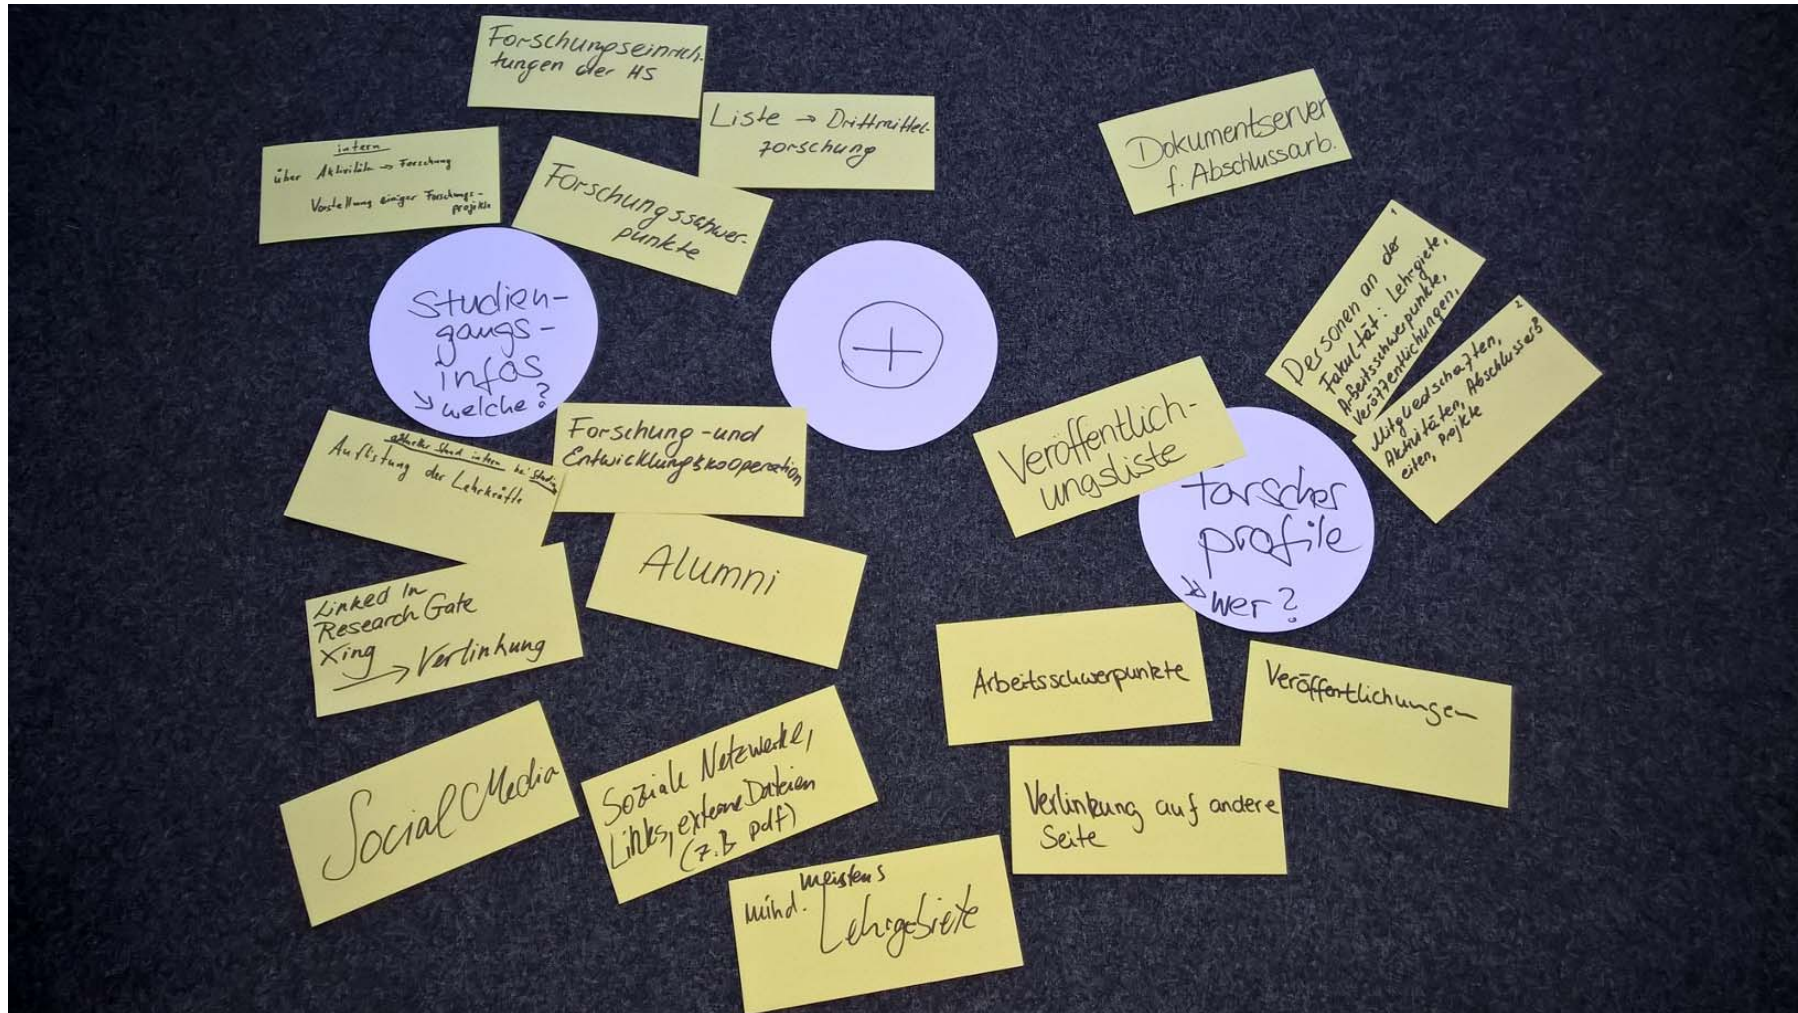 Forschungseinrich-
tungen der HS
Liste → Drittmittel-
forschung
Dokumentserver
f. Abschlussarb.
intern
über Aktivitäten → Forschung
Vorstellung einiger Forschungs-
projekte
Forschungsschwer-
punkte
Studien-
gangs-
infos
↘ welche?
+
1
Personen an der
Fakultät: Lehrgiete,
Arbeitsschwerpunkte,
Veröffentlichungen,
2
Mitgliedschaften,
Aktivitäten, Abschlussarb
eiten, projekte
Veröffentlich-
ungsliste
forscher
profile
↘ wer?
Stand intern bei
Auflistung der Lehrkräfte
Forschung-und
Entwicklungskooperation
Alumni
Linked In
Research Gate
Xing
→ Verlinkung
Arbeitsschwerpunkte
Veröffentlichungen
Social Media
Soziale Netzwerke,
Links, externe Dateien
(z.B pdf)
Verlinkung auf andere
Seite
meistens
mind.
Lehrgebiete